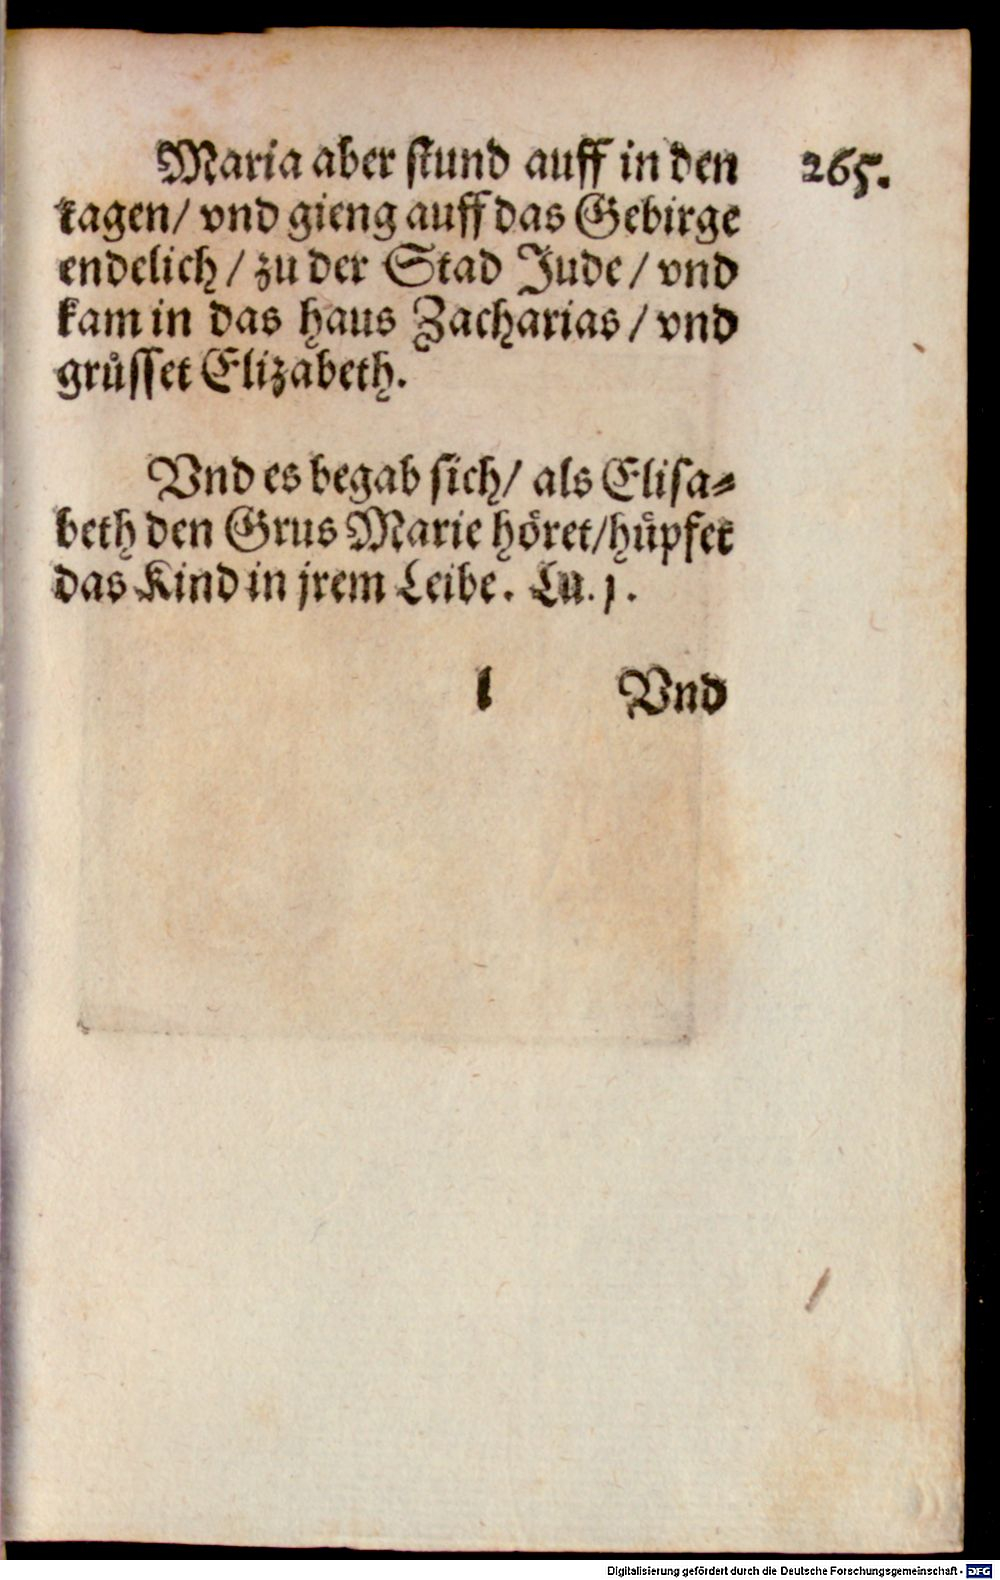 Maria aber ſtund auff in den
265.
tagen/ vnd gieng auff das Gebirge
endelich / zu der Stad Jude / vnd
kam in das haus Zacharias / vnd
gruͤſſet Elizabeth.
Vnd es begab ſich/ als Eliſa⸗
beth den Grus Marie hoͤret/huͤpfet
das Kind in jrem Leibe. Lu. j.
l Vnd
Digitalisierung gefördert durch die Deutsche Forschungsgemeinschaft - DFG